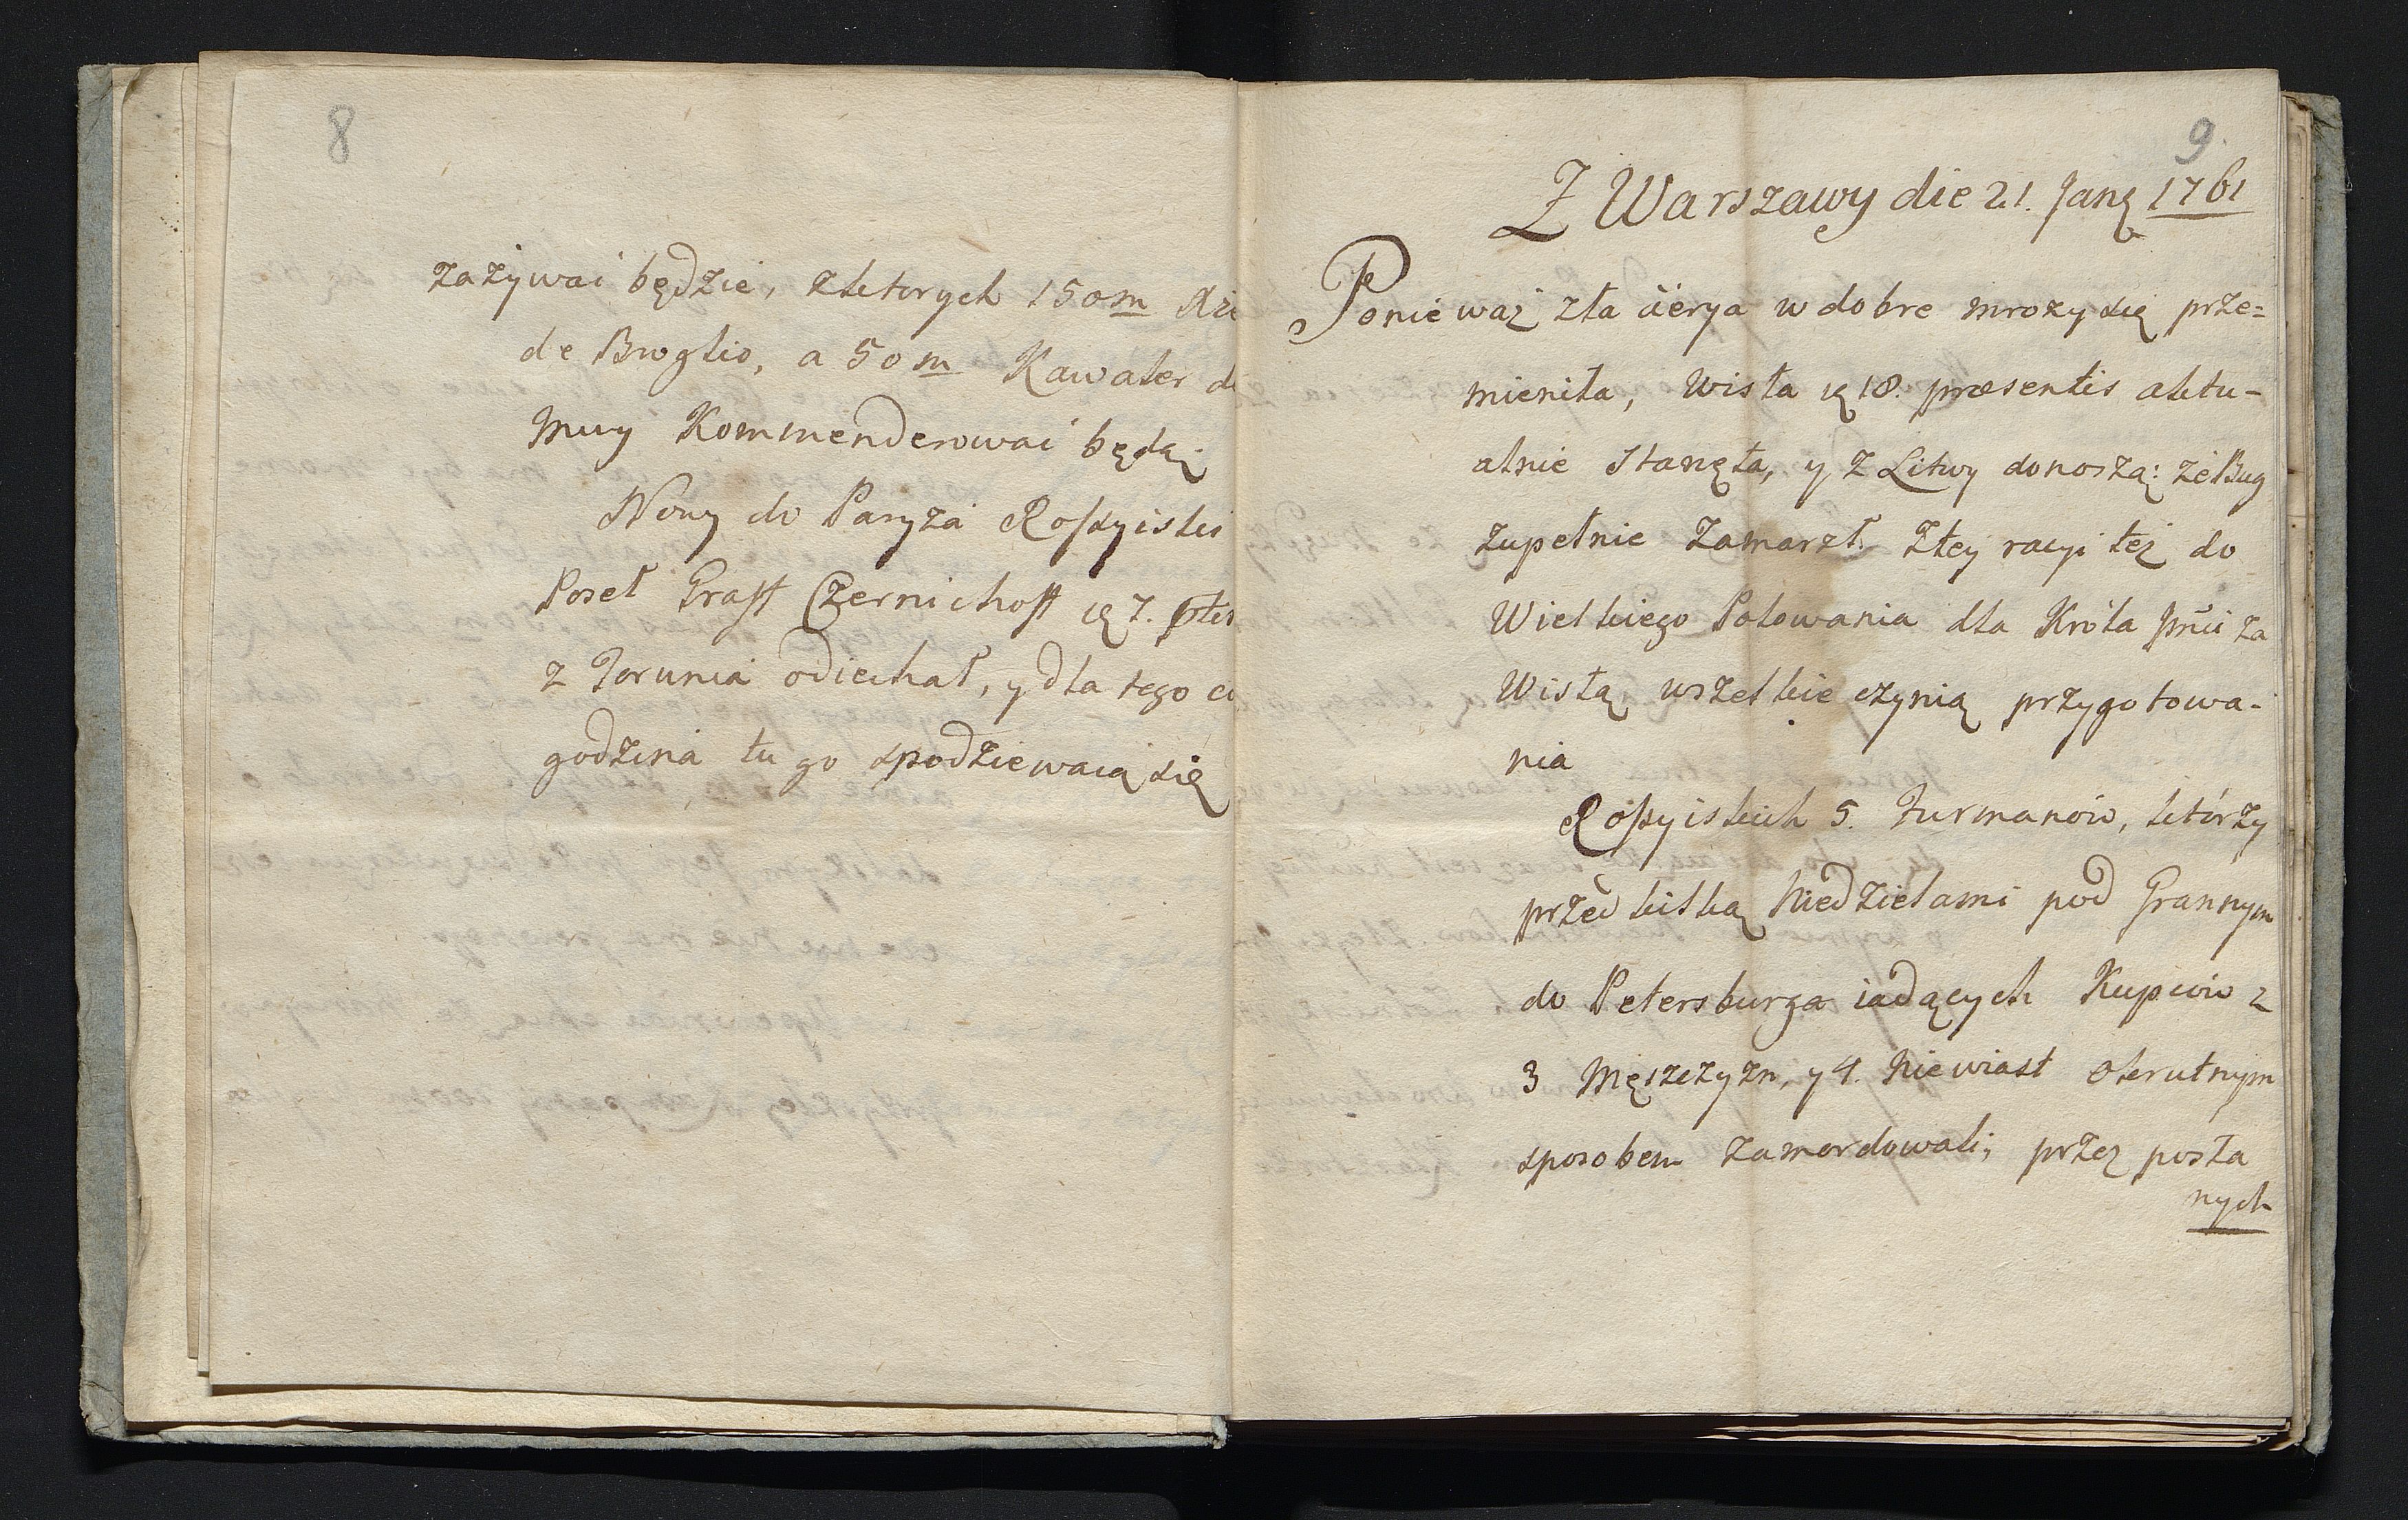 8
zazywai będzie, z ktorych 150m Xże
de Broglio, a 50m Kawaler de
Muy Kommenderowai będą;
Nowy do Paryża Rossyiski
Poseł Graff Czernichoff ię 7. pter
z Torunia odiechał, y dla tego co
godzina tu go spodziewaią się
9.
Z Warszawy die 21. Janę 1761
Ponieważ zła aerya w dobre mrozy się prze=
mieniła, Wisła ię 18. praesentis aktu-
alnie stanęła, y z Litwy donoszą: że Bug
zupełnie zamarzł. Z tey racyi też do
Wielkiego Polowania dla Króla pnu za
Wisłą wszelkie czynią przygotowa-
nia
Rossyiskich 5. Furmanów, którzy
przed kilką Niedzielami pod Grannym
do Petersburga iadących Kupców z
3 Męszczyzn, y 4. Niewiast okrutnym
sposobem zamordowali; przez posła
nych